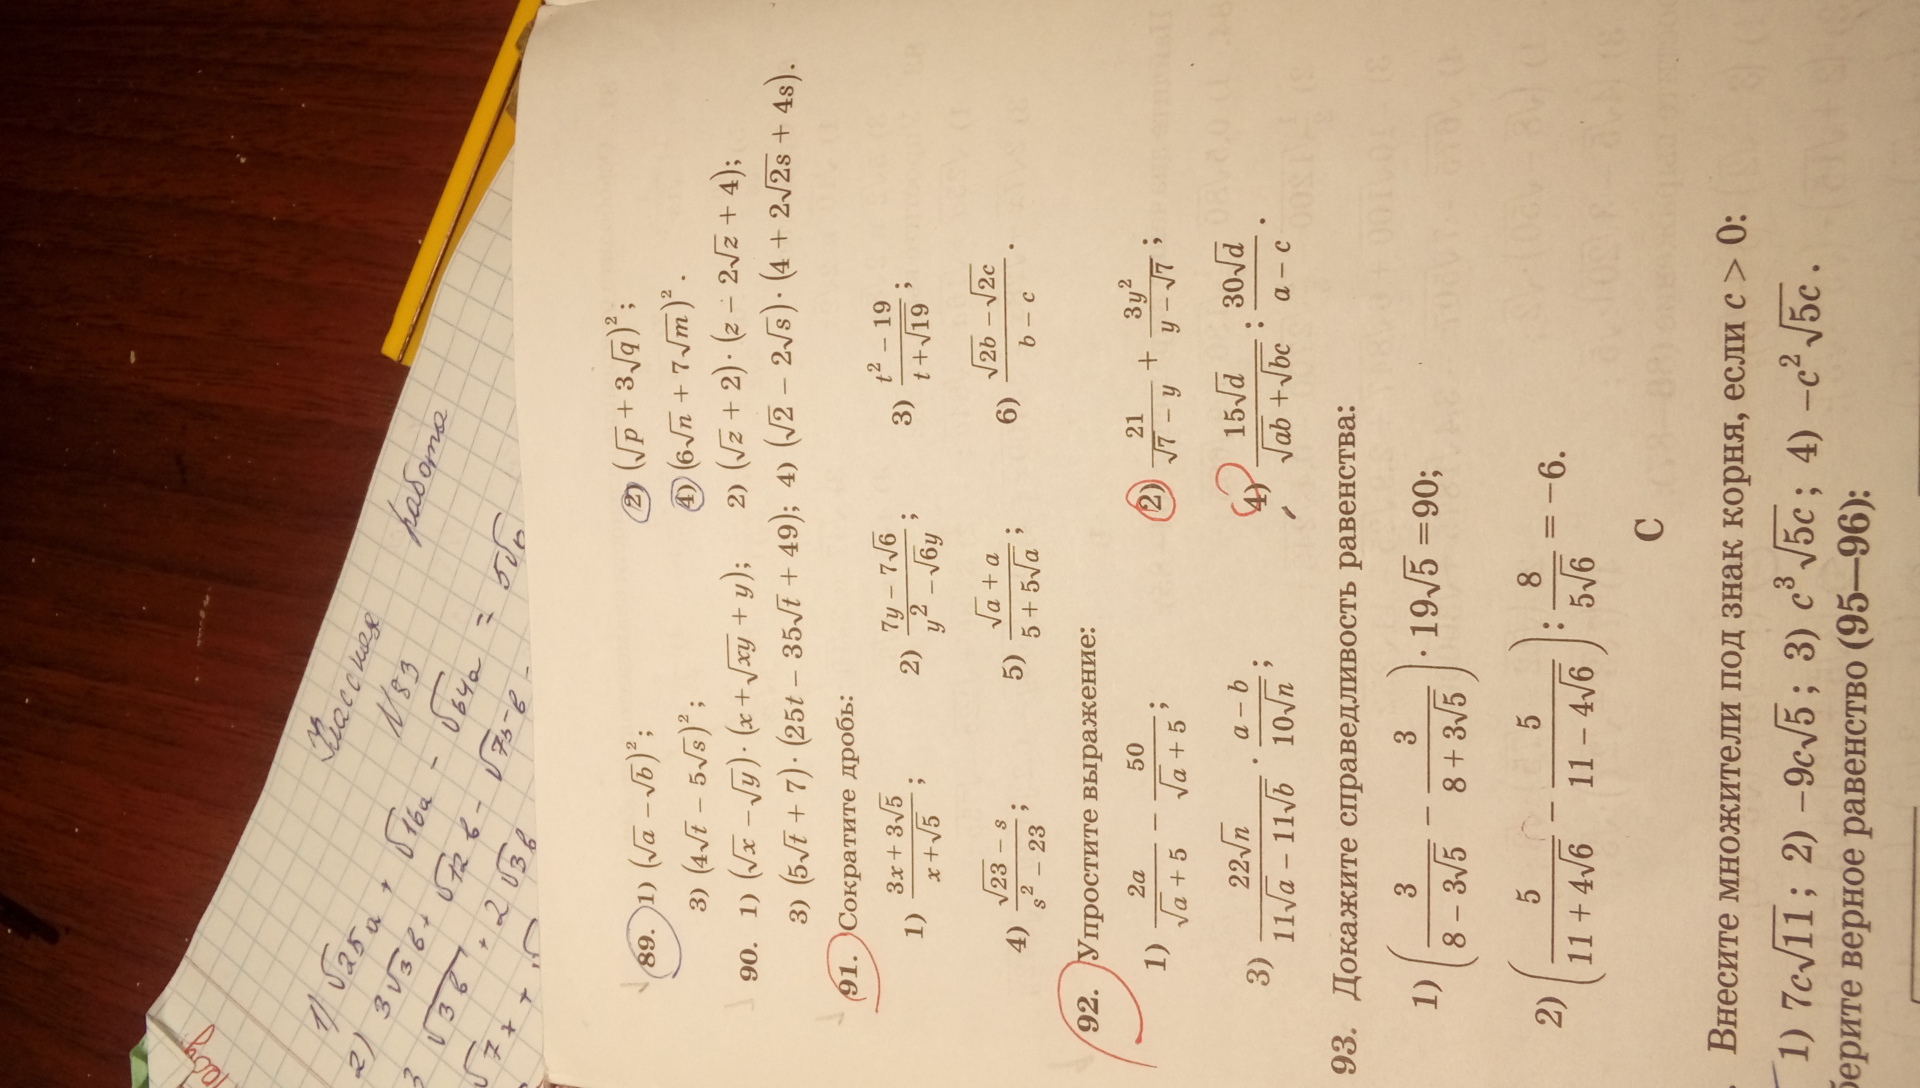 Классная работа
№83
1) √25a + √16a - √64a = 5√a
2) 3√3b + √12b - √75b -
√3b + 2√3b
89. 1) (√a − √b)²; 2) (√p + 3√q)²;
3) (4√t − 5√s)²; 4) (6√n + 7√m)².
90. 1) (√x − √y) · (x + √xy + y); 2) (√z + 2) · (z − 2√z + 4);
3) (5√t + 7) · (25t − 35√t + 49); 4) (√2 − 2√s) · (4 + 2√2s + 4s).
91. Сократите дробь:
1) (3x + 3√5)/(x + √5); 2) (7y − 7√6)/(y² − √6y); 3) (t² − 19)/(t + √19);
4) (√23 − s)/(s² − 23); 5) (√a + a)/(5 + 5√a); 6) (√2b − √2c)/(b − c).
92. Упростите выражение:
1) 2a/(√a + 5) − 50/(√a + 5); 2) 21/(√7 − y) + 3y²/(y − √7);
3) 22√n/(11√a − 11√b) · (a − b)/(10√n); 4) 15√d/(√ab + √bc) : 30√d/(a − c).
93. Докажите справедливость равенства:
1) (3/(8 − 3√5) − 3/(8 + 3√5)) · 19√5 = 90;
2) (5/(11 + 4√6) − 5/(11 − 4√6)) : 8/(5√6) = −6.
С
Внесите множители под знак корня, если c > 0:
1) 7c√11; 2) −9c√5; 3) c³√5c; 4) −c²√5c.
берите верное равенство (95—96):